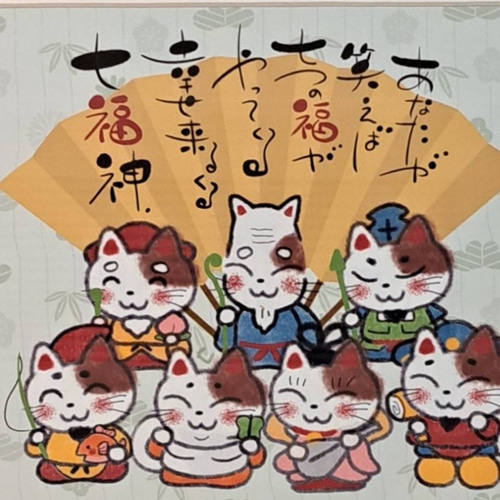 あなたが
笑えば
七つの福が
やってくる
幸せ来るくる
七福神.